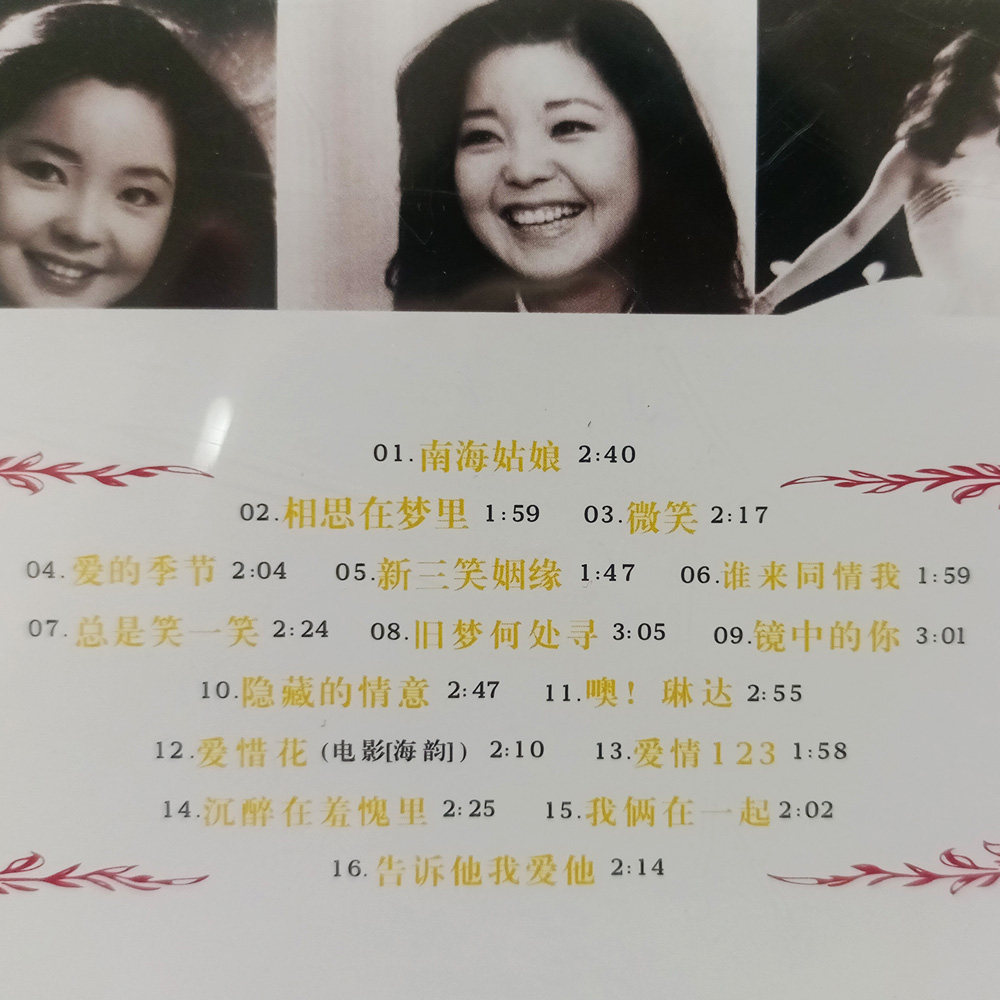 01.南海姑娘 2:40
02.相思在梦里 1:59 03.微笑 2:17
04.爱的季节 2:04 05.新三笑姻缘 1:47 06.谁来同情我 1:59
07.总是笑一笑 2:24 08.旧梦何处寻 3:05 09.镜中的你 3:01
10.隐藏的情意 2:47 11.噢！琳达 2:55
12.爱惜花 (电影[海韵]) 2:10 13.爱情123 1:58
14.沉醉在羞愧里 2:25 15.我俩在一起 2:02
16.告诉他我爱他 2:14